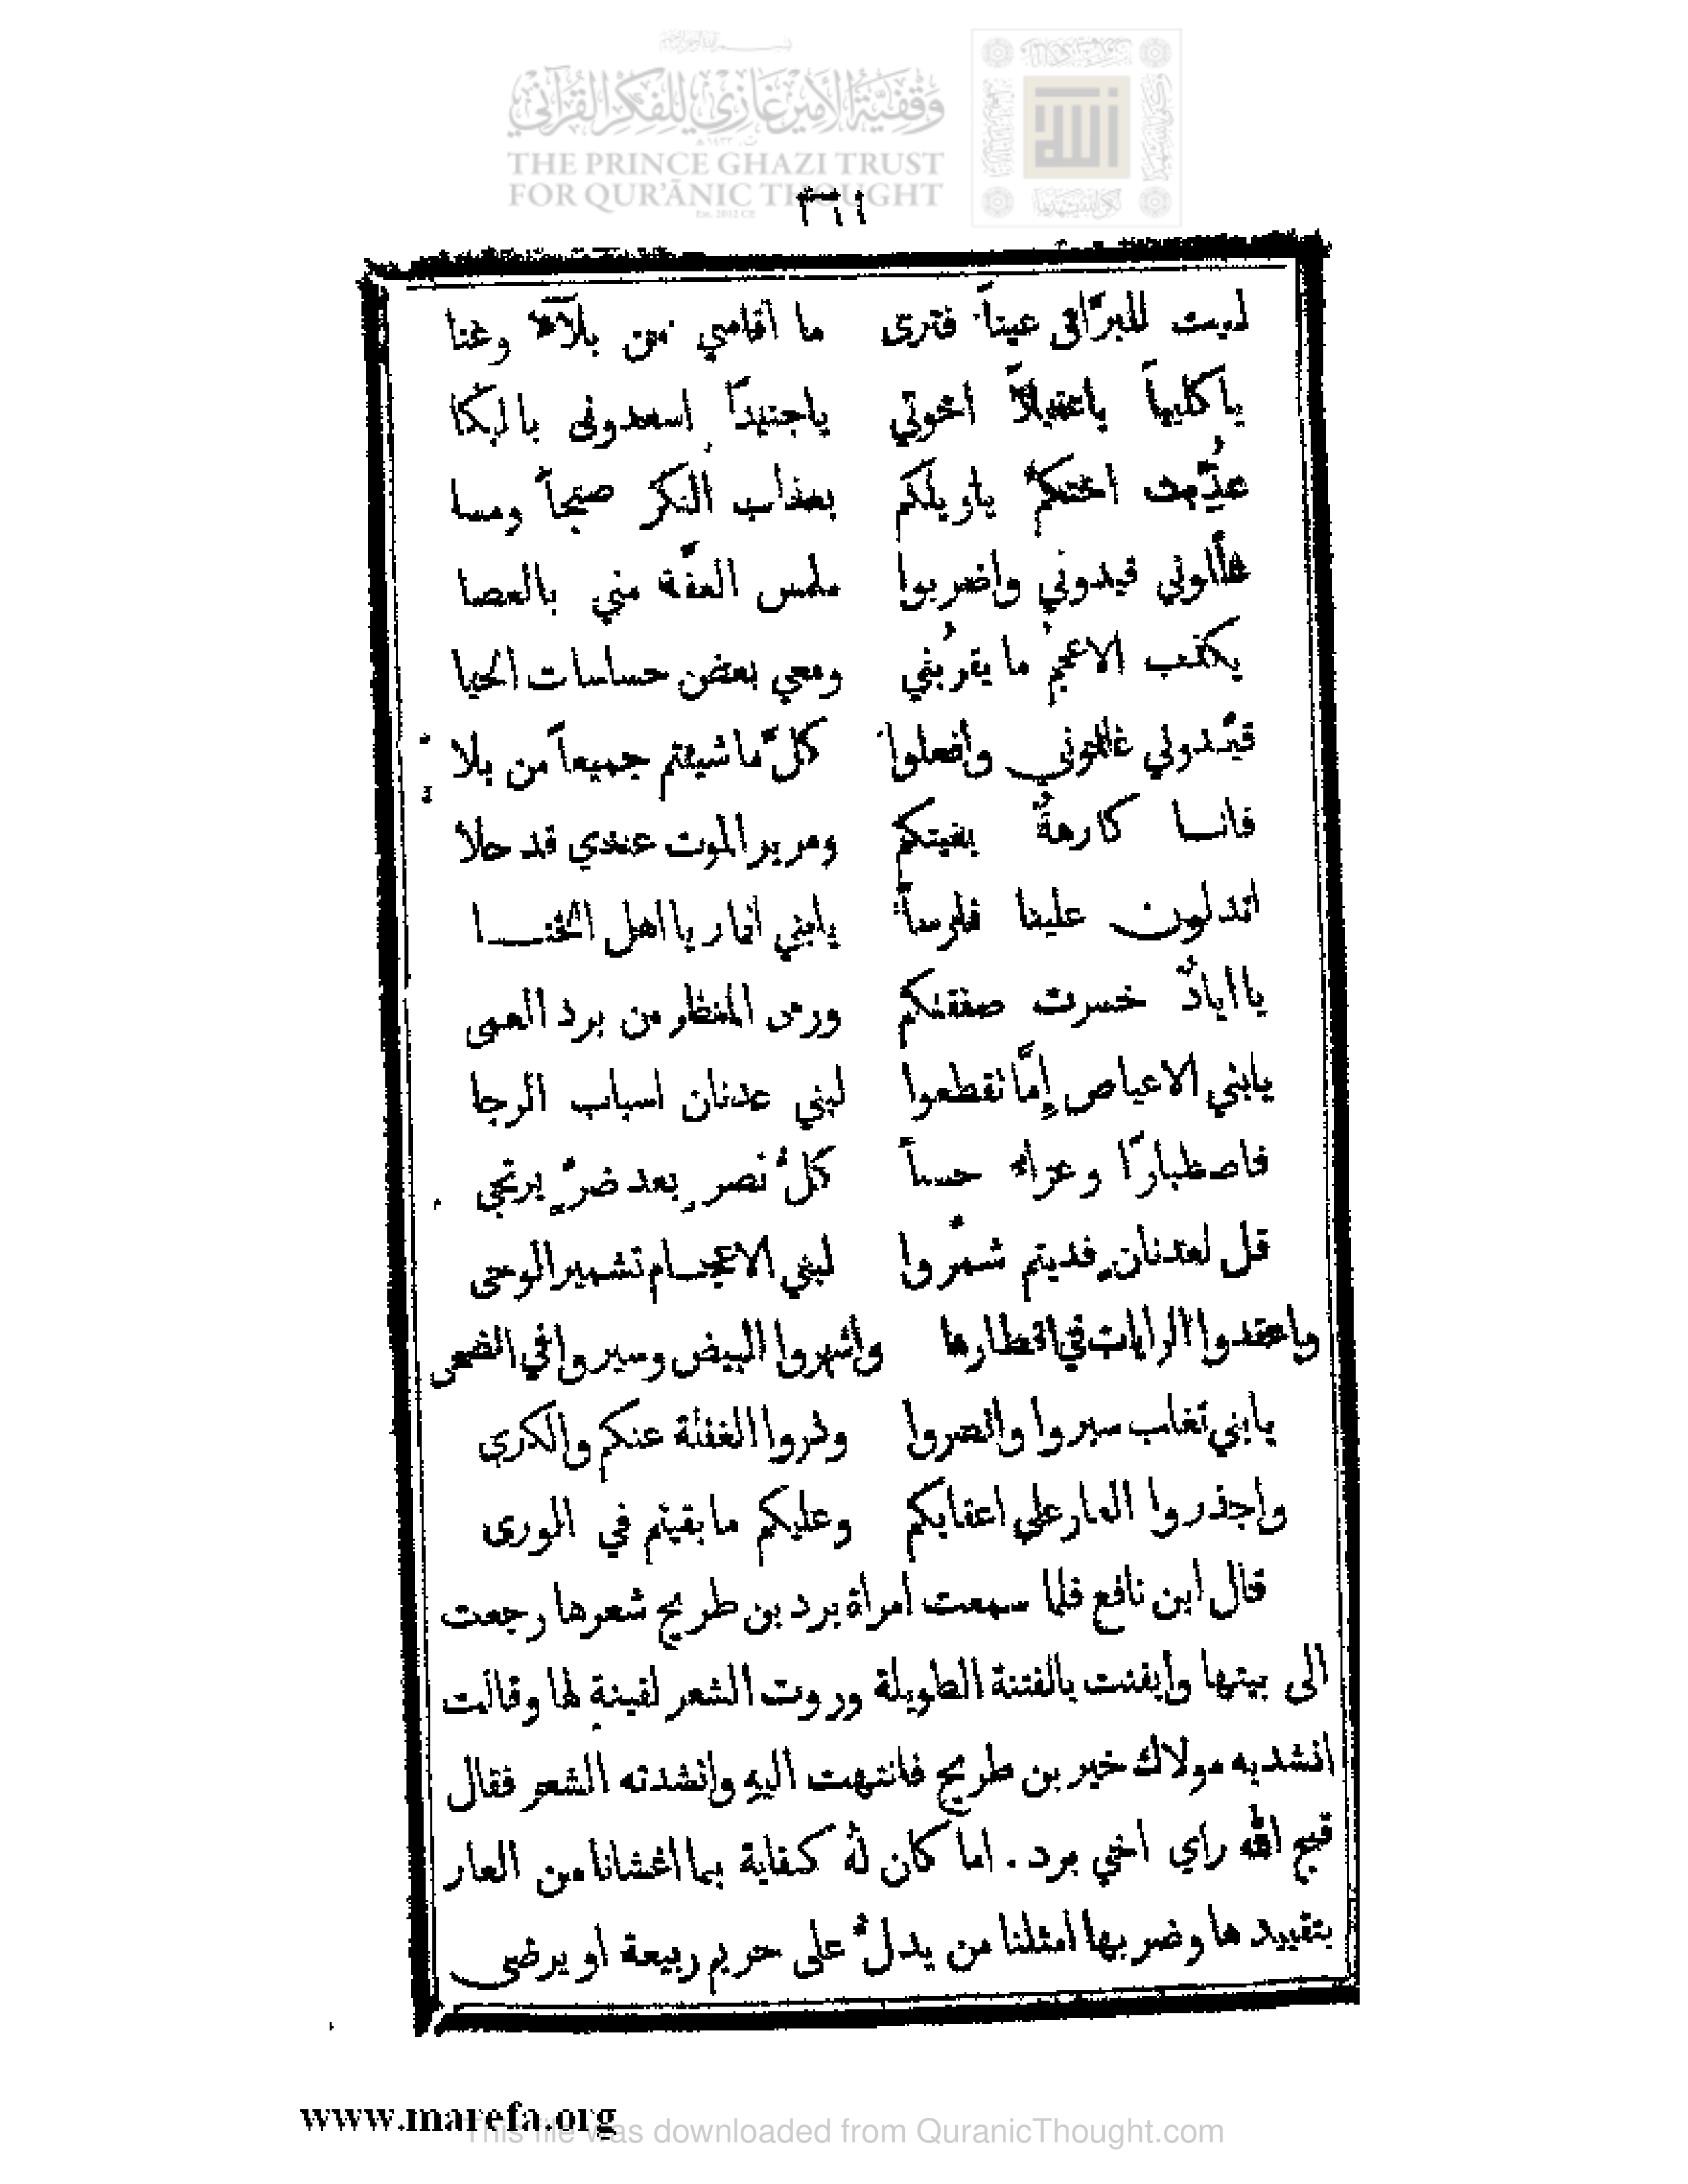 وقفية الأمير غازي للفكر القرآني
THE PRINCE GHAZI TRUST
FOR QUR'ĀNIC THOUGHT
Est. 2012 CE
٣٦١
ليت للبرَّاق عيناً فترى ما أقاسي من بلآءٍ وعنا
ياكليباً ياعقيلاً اخوتي ياجنيداً اسعدوني بالبكا
عُذِّبت اختكم ياويلكم بعذاب النكر صبحاً ومسا
غللوني قيدوني واضربوا ملمس العفَّة مني بالعصا
يكذب الاعجم ما يقرُبني ومعي بعض حساسات الحيا
قيّدوني غللوني وافعلوا كلَّ ماشيتم جميعاً من بلا
فانا كارهةٌ بغيتكم ومرير الموت عندي قد حلا
اتدلون علينا فارساً يابني انمار يا اهل الخنا
يا ايادٌ خسرت صفقتكم ورمى المنظر من برد العمى
يابني الاعياص إِمَّا تقطعوا لبني عدنان اسباب الرجا
فاصطبارًا وعزاء حسناً كلُّ نصرٍ بعد ضرٍّ يرتجى
قل لعدنانٍ فديتم شمّروا لبني الاعجام تشمير الوحى
واعقدوا الرايات في اقطارها واشهروا البيض وسيروا في الضحى
يابني تغلب سيروا وانصروا وذروا الغفلة عنكم والكرى
واحذروا العار على اعقابكم وعليكم ما بقيتم في الورى
قال ابن نافع فلما سمعت امراة برد بن طريح شعرها رجعت
الى بيتها وايقنت بالفتنة الطويلة وروت الشعر لقينةٍ لها وقالت
انشديه مولاك خير بن طريح فانتهت اليهِ وانشدته الشعر فقال
قبح الله راي اخي برد . اما كان لهُ كفاية بما اغشانا من العار
بتقييدها وضربها امثلنا من يدلُّ على حريم ربيعة او يرضى
www.marefa.org
This file was downloaded from QuranicThought.com